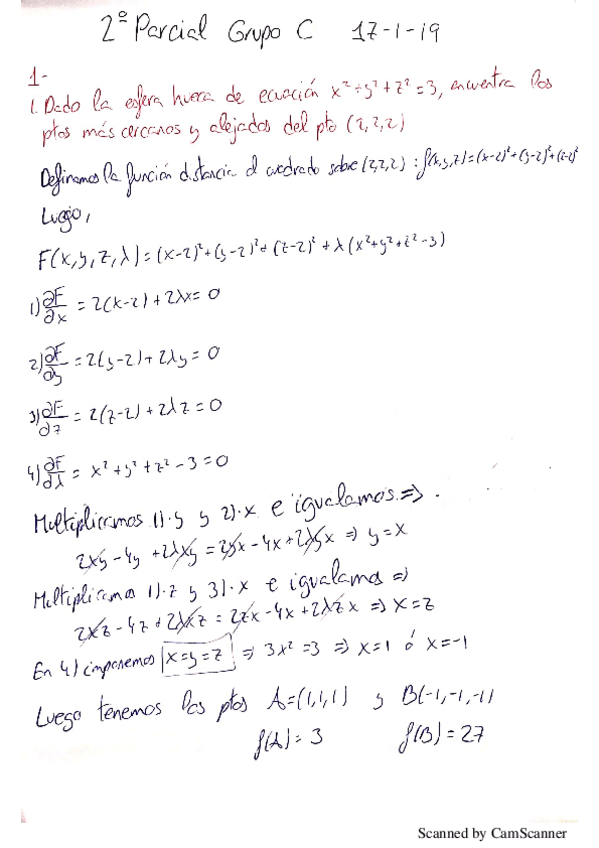 2º Parcial Grupo C 17-1-19
1-
1. Dado la esfera hueca de ecuación x²+y²+z²=3, encuentra los
ptos más cercanos y alejados del pto (2,2,2)
Definamos la función distancia al cuadrado sobre (2,2,2) : f(x,y,z)=(x-2)²+(y-2)²+(z-2)²
Luego,
F(x,y,z,λ)=(x-2)²+(y-2)²+(z-2)²+λ(x²+y²+z²-3)
1) ∂F/∂x = 2(x-2)+2λx=0
2) ∂F/∂y = 2(y-2)+2λy=0
3) ∂F/∂z = 2(z-2)+2λz=0
4) ∂F/∂λ = x²+y²+z²-3=0
Multiplicamos 1)·y y 2)·x e igualamos ⇒
2xy-4y+2λxy=2yx-4x+2λyx ⇒ y=x
Multiplicamos 1)·z y 3)·x e igualamos ⇒
2xz-4z+2λxz=2zx-4x+2λzx ⇒ x=z
En 4) imponemos x=y=z ⇒ 3x²=3 ⇒ x=1 ó x=-1
Luego tenemos los ptos A=(1,1,1) y B(-1,-1,-1)
f(A)=3 f(B)=27
Scanned by CamScanner